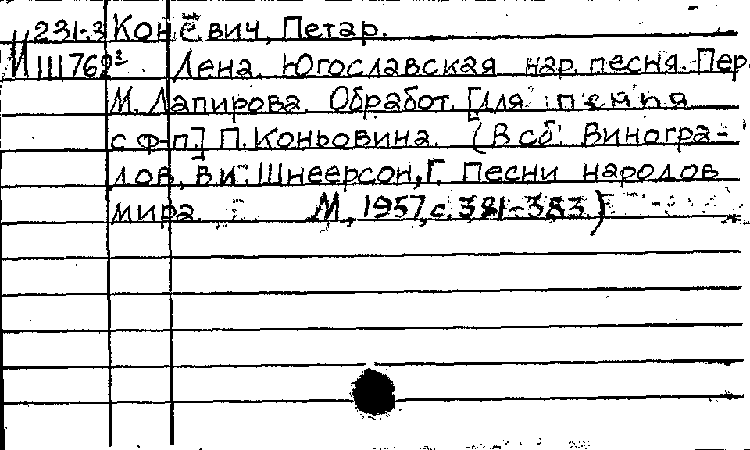 231-3 Конёвич, Петар.
М 1117682 Лена. Югославская нар. песня. Пер.
М. Лапирова. Обработ. [для пения
с ф-п.] П. Коньовина. (В сб. Виногра-
дов, В. и Шнеерсон, Г. Песни народов
мира. М., 1957, с. 381-383)